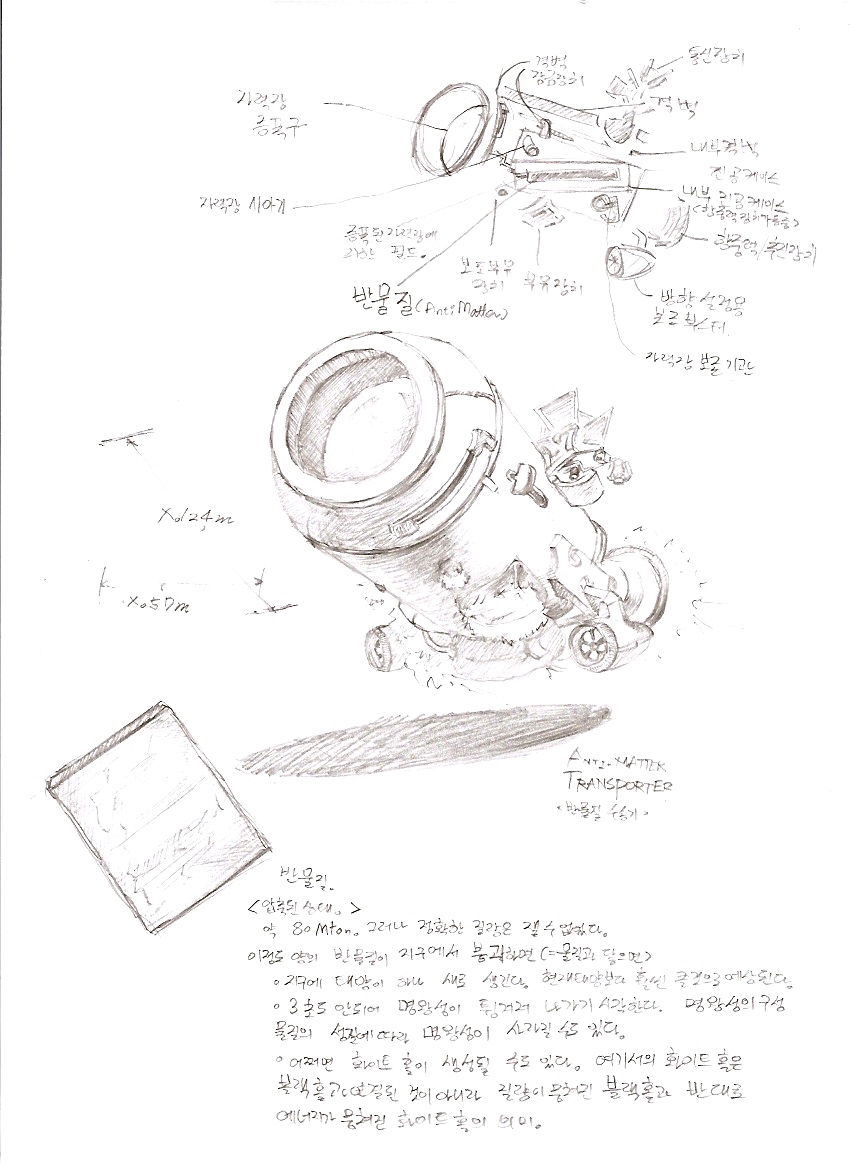 통신장치
격벽
잠금장치
격벽
자력장
증폭구
내부격벽
진공케이스
내부 진공케이스
자력장 시야기
증폭된 자력장에
의한 필드.
보조부부
장치
반물질(AntiMatter)
항중력/추진장치
방향 설정용
보조 부스터.
자력장 보존기관
X.124m
X.57m
ANTI-MATTER
TRANSPORTER
<반물질 수송기>
반물질.
<압축된 상태.>
약 80Mton. 그러나 정확한 질량은 잴 수 없다.
이정도 양의 반물질이 지구에서 붕괴하면(=물질과 닿으면)
◦지구에 태양이 하나 새로 생긴다. 현재태양보다 훨씬 클것으로 예상된다.
◦3초도 안되어 명왕성이 튕겨져 나가기 시작한다. 명왕성의 구성
물질의 성질에 따라 명왕성이 사라질 수도 있다.
◦어쩌면 화이트 홀이 생성될 수도 있다. 여기서의 화이트 홀은
블랙홀과 연결된 것이 아니라 질량이 뭉쳐진 블랙홀과 반대로
에너지가 뭉쳐진 화이트 홀의 의미.